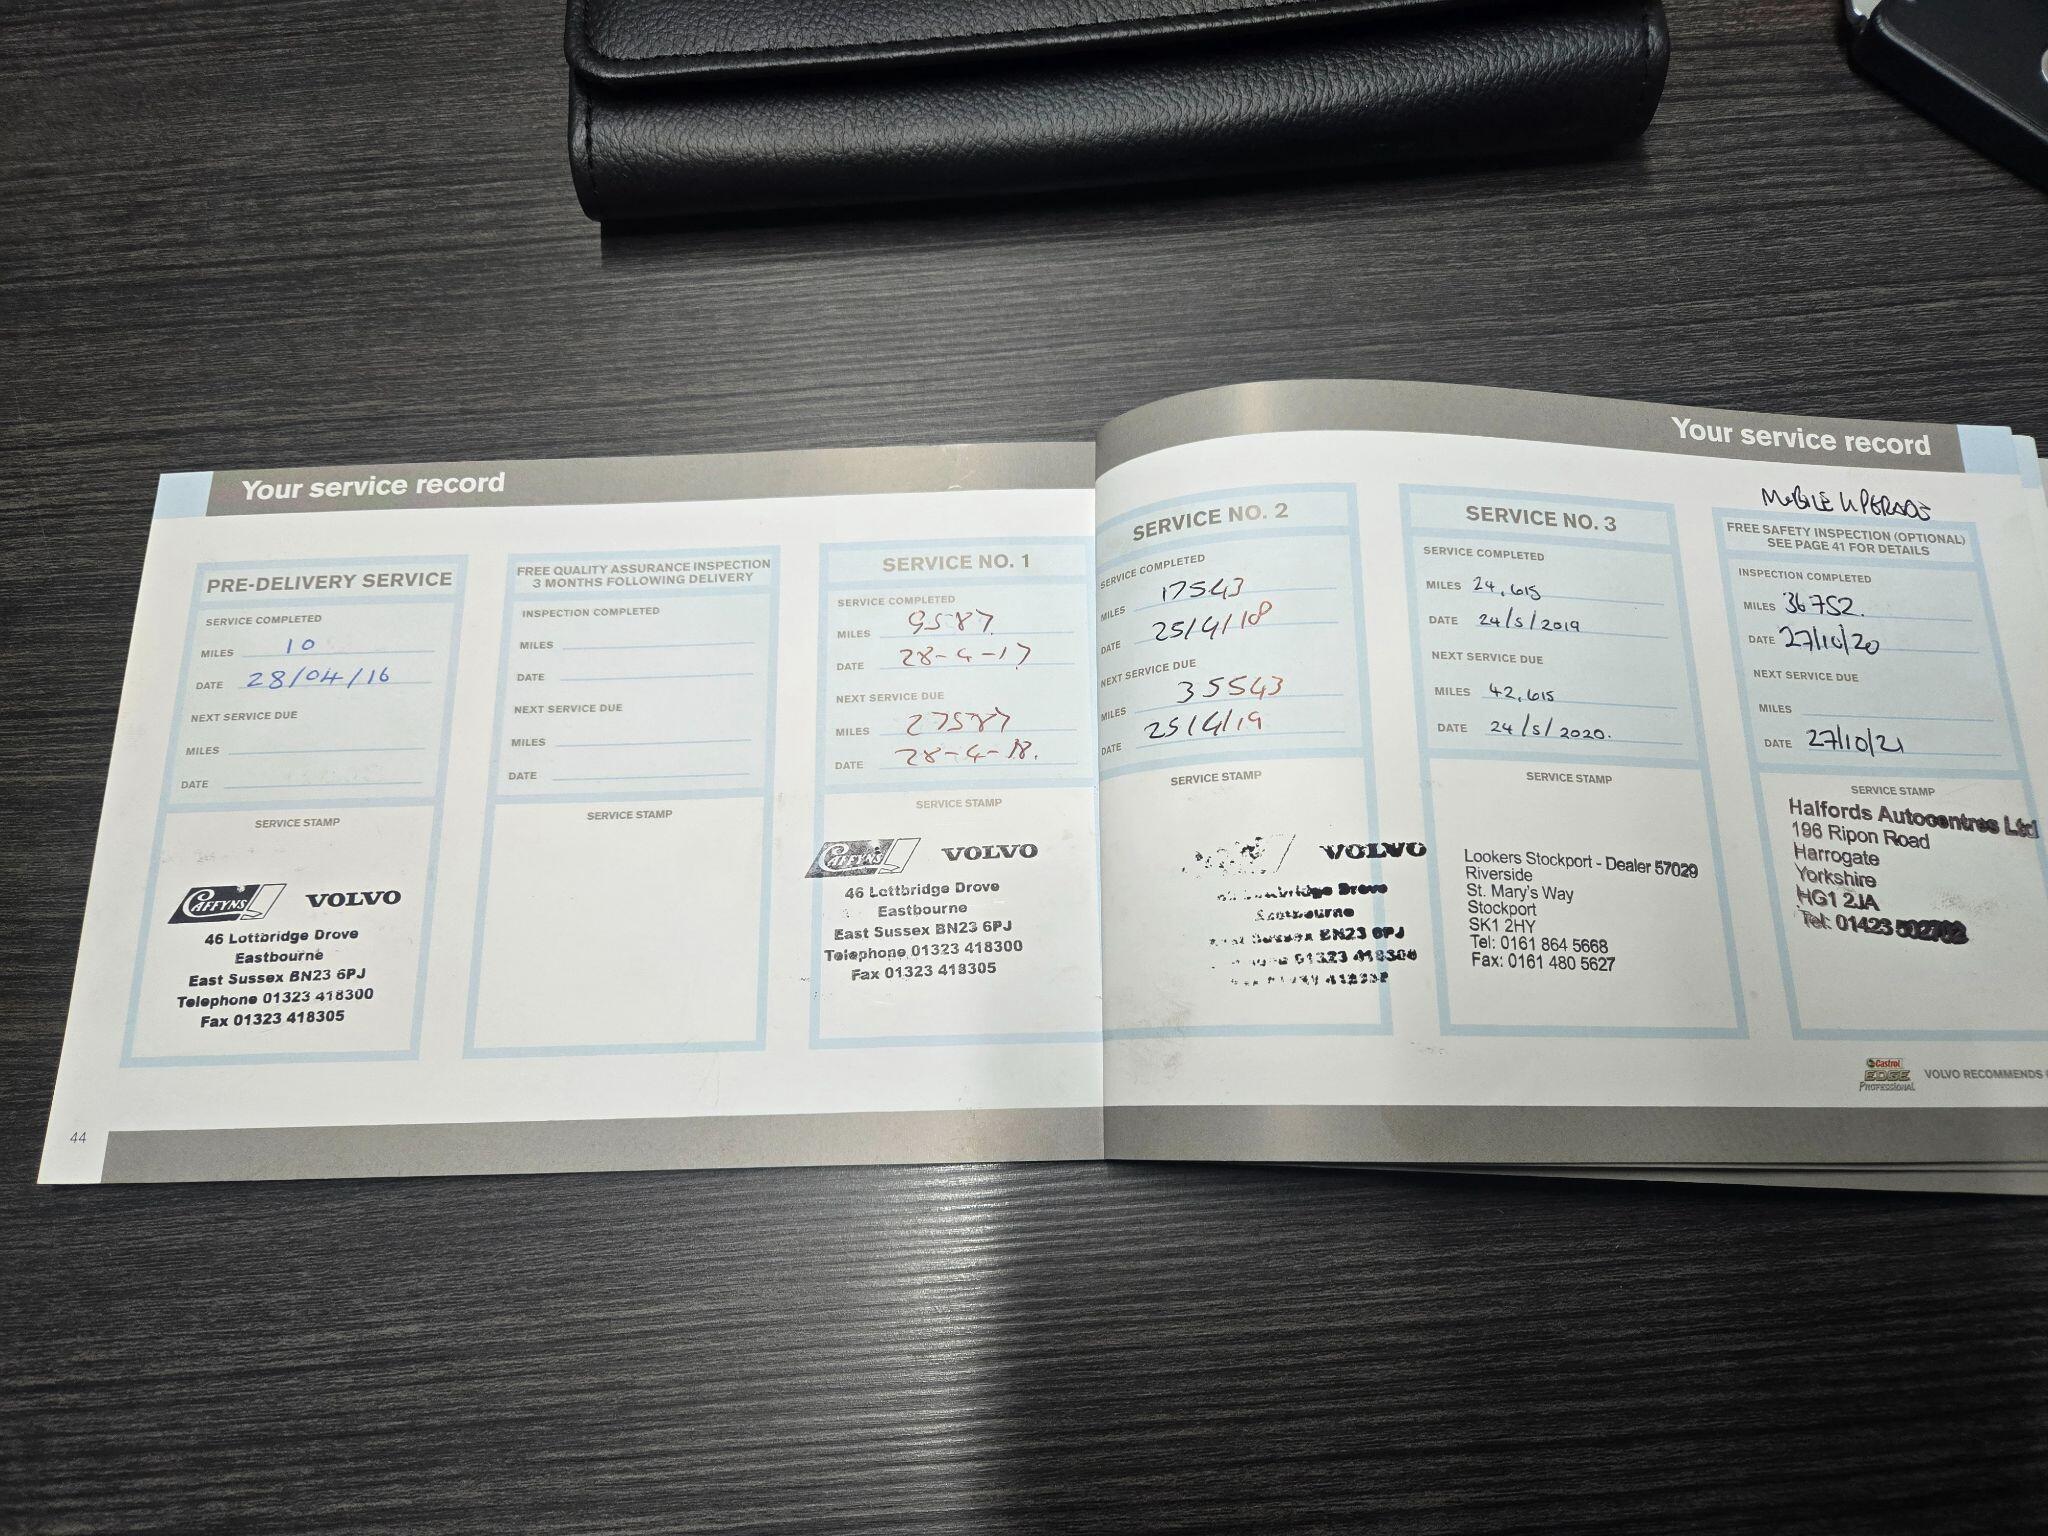 Your service record
PRE-DELIVERY SERVICE
SERVICE COMPLETED
MILES 10
DATE 28/04/16
NEXT SERVICE DUE
MILES
DATE
SERVICE STAMP
CAFFYNS VOLVO
46 Lottbridge Drove
Eastbourne
East Sussex BN23 6PJ
Telephone 01323 418300
Fax 01323 418305
FREE QUALITY ASSURANCE INSPECTION
3 MONTHS FOLLOWING DELIVERY
INSPECTION COMPLETED
MILES
DATE
NEXT SERVICE DUE
MILES
DATE
SERVICE STAMP
SERVICE NO. 1
SERVICE COMPLETED
MILES 9587
DATE 28-4-17
NEXT SERVICE DUE
MILES 27587
DATE 28-4-18.
SERVICE STAMP
CAFFYNS VOLVO
46 Lottbridge Drove
Eastbourne
East Sussex BN23 6PJ
Telephone 01323 418300
Fax 01323 418305
44
Your service record
SERVICE NO. 2
SERVICE COMPLETED
MILES 17543
DATE 25/4/18
NEXT SERVICE DUE
MILES 35543
DATE 25/4/19
SERVICE STAMP
VOLVO
Drove
Eastbourne
East Sussex BN23 6PJ
01323 418300
SERVICE NO. 3
SERVICE COMPLETED
MILES 24,615
DATE 24/5/2019
NEXT SERVICE DUE
MILES 42,615
DATE 24/5/2020.
SERVICE STAMP
Lookers Stockport - Dealer 57029
Riverside
St. Mary's Way
Stockport
SK1 2HY
Tel: 0161 864 5668
Fax: 0161 480 5627
MOBILE UPGRADE
FREE SAFETY INSPECTION (OPTIONAL)
SEE PAGE 41 FOR DETAILS
INSPECTION COMPLETED
MILES 36752.
DATE 27/10/20
NEXT SERVICE DUE
MILES
DATE 27/10/21
SERVICE STAMP
Halfords Autocentres Ltd
196 Ripon Road
Harrogate
Yorkshire
HG1 2JA
Tel: 01423
Castrol
EDGE
PROFESSIONAL
VOLVO RECOMMENDS